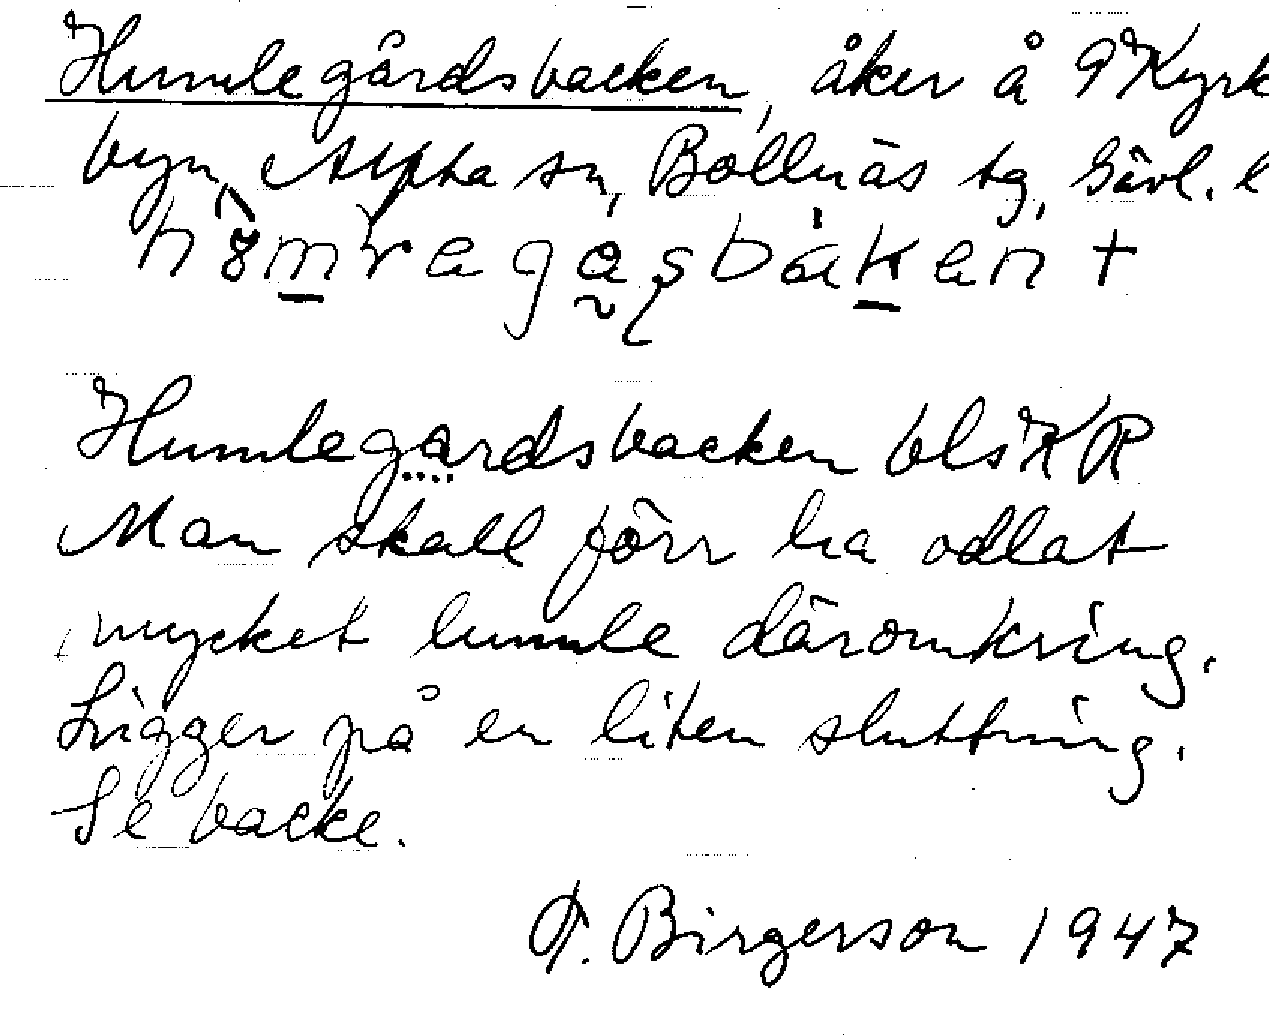 Humlegårdsbacken, åker å 9 Kyrk
byn, Alfta sn, Bollnäs tg, Gävl. l
Humlegårdsbacken
Man skall förr ha odlat
mycket humle däromkring.
Ligger på en liten sluttning.
Se backe.
Birgerson 1947